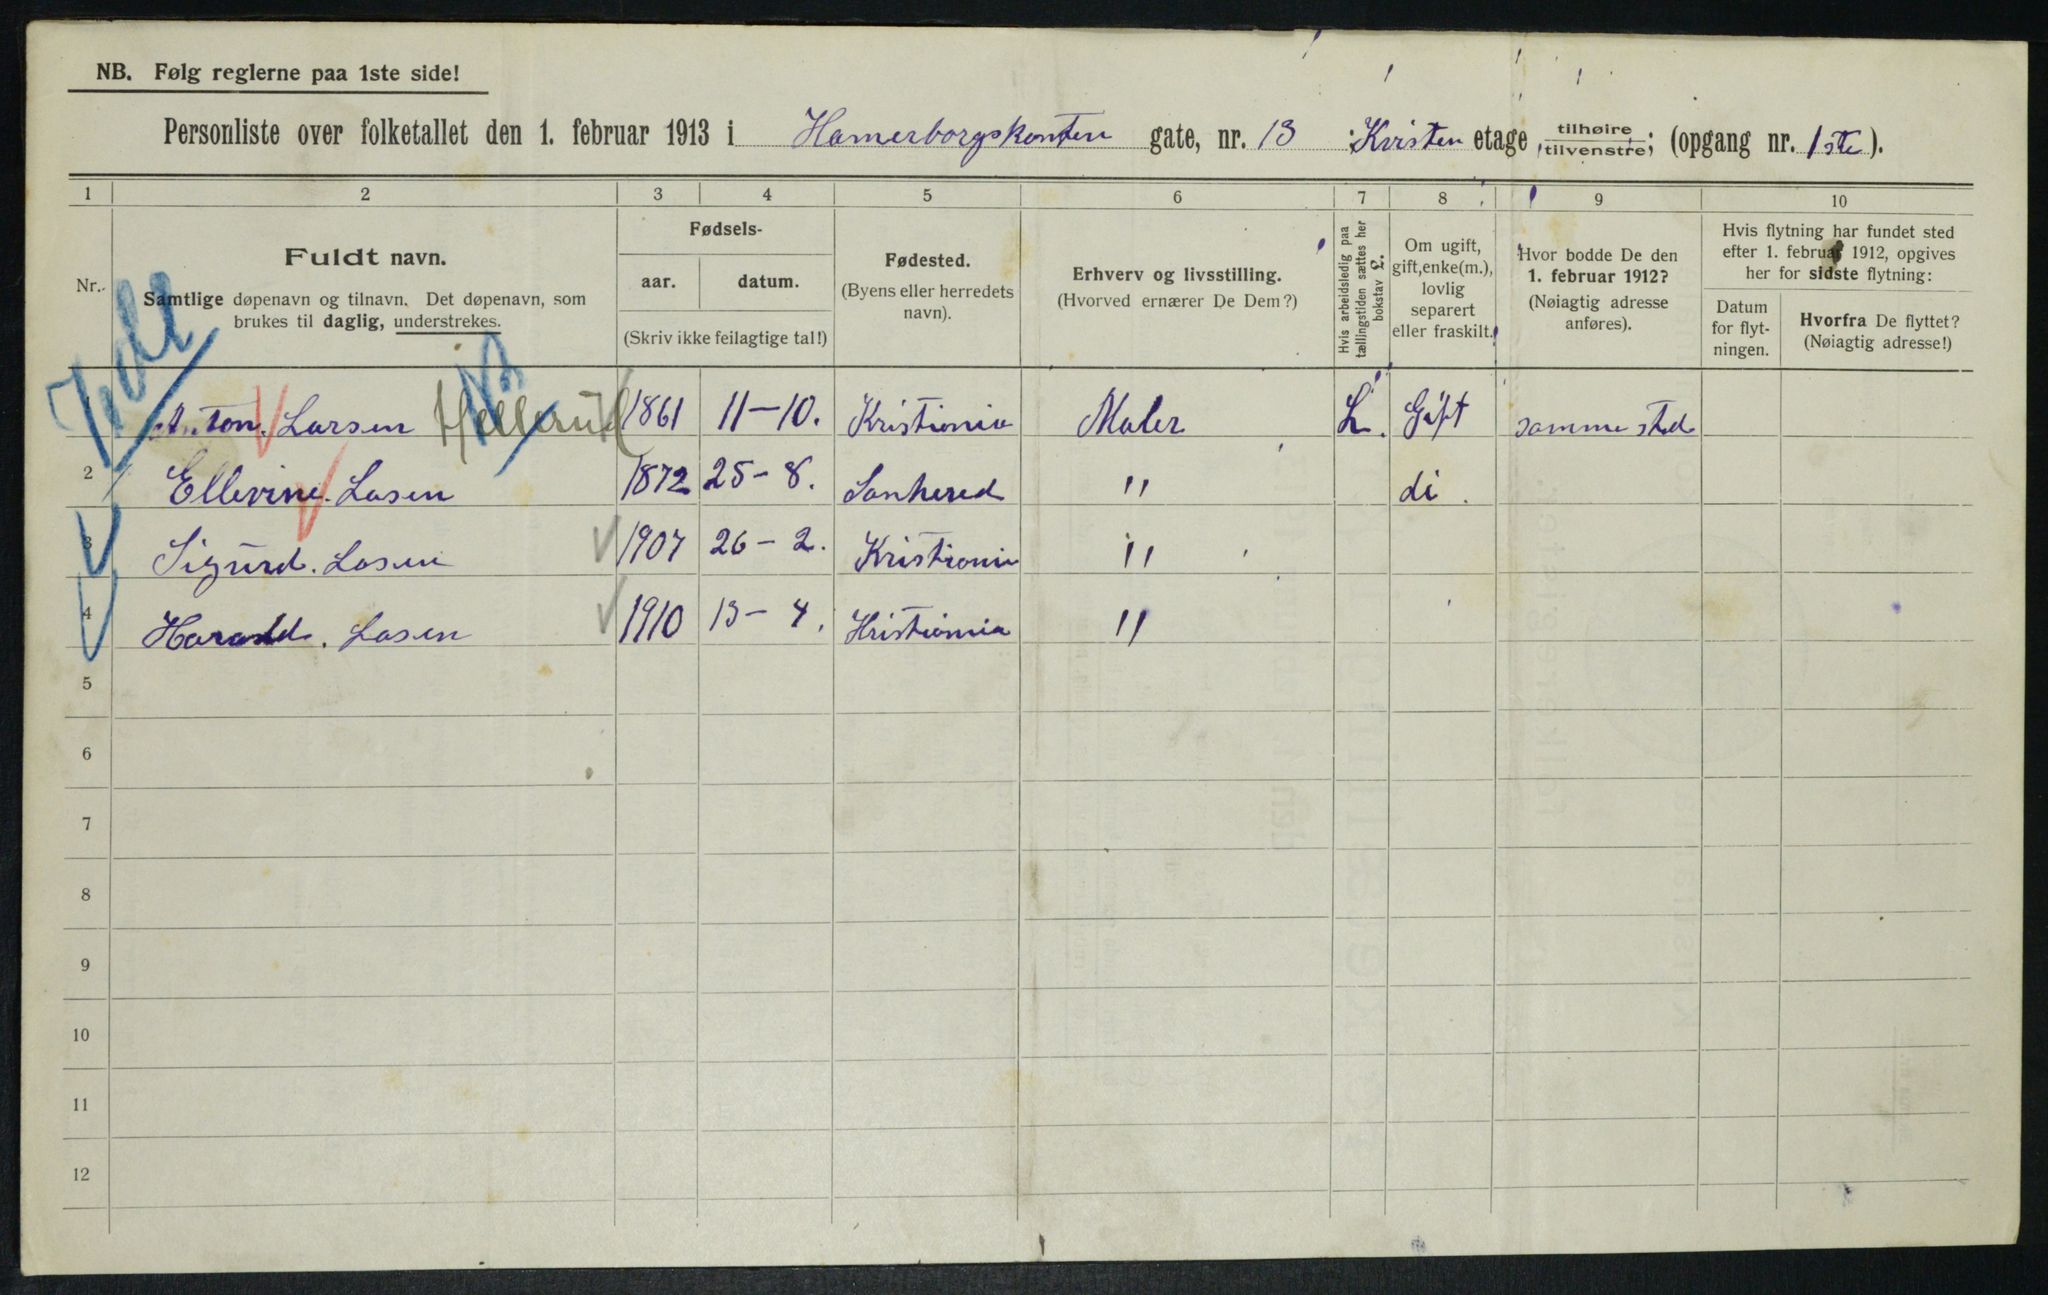 NB. Følg reglerne paa 1ste side!
Personliste over folketallet den 1. februar 1913 i Hamerborgskanten gate, nr. 13 : Kvisten etage, tilhøire, tilvenstre; (opgang nr. 1ste).
1 2 3 4 5 6 7 8 9 10
Nr.
Fuldt navn.
Samtlige døpenavn og tilnavn. Det døpenavn, som
brukes til daglig, understrekes.
Fødsels-
aar. datum.
(Skriv ikke feilagtige tal!)
Fødested.
(Byens eller herredets
navn).
Erhverv og livsstilling.
(Hvorved ernærer De Dem?)
Hvis arbeidsledig paa
tællingstiden sættes her
bokstav L.
Om ugift,
gift, enke(m.),
lovlig
separert
eller fraskilt.
Hvor bodde De den
1. februar 1912?
(Nøiagtig adresse
anføres).
Hvis flytning har fundet sted
efter 1. februar 1912, opgives
her for sidste flytning:
Datum
for flyt-
ningen.
Hvorfra De flyttet?
(Nøiagtig adresse!)
1 Anton. Larsen Hellerud 1861 11-10. Kristiania Maler L. Gift samme sted
2 Ellevine. Lasen 1872 25-8. Sanhered " di.
3 Sigurd. Lasen 1907 26-2. Kristiania "
4 Harald. Lasen 1910 13-4. Kristiania "
5
6
7
8
9
10
11
12